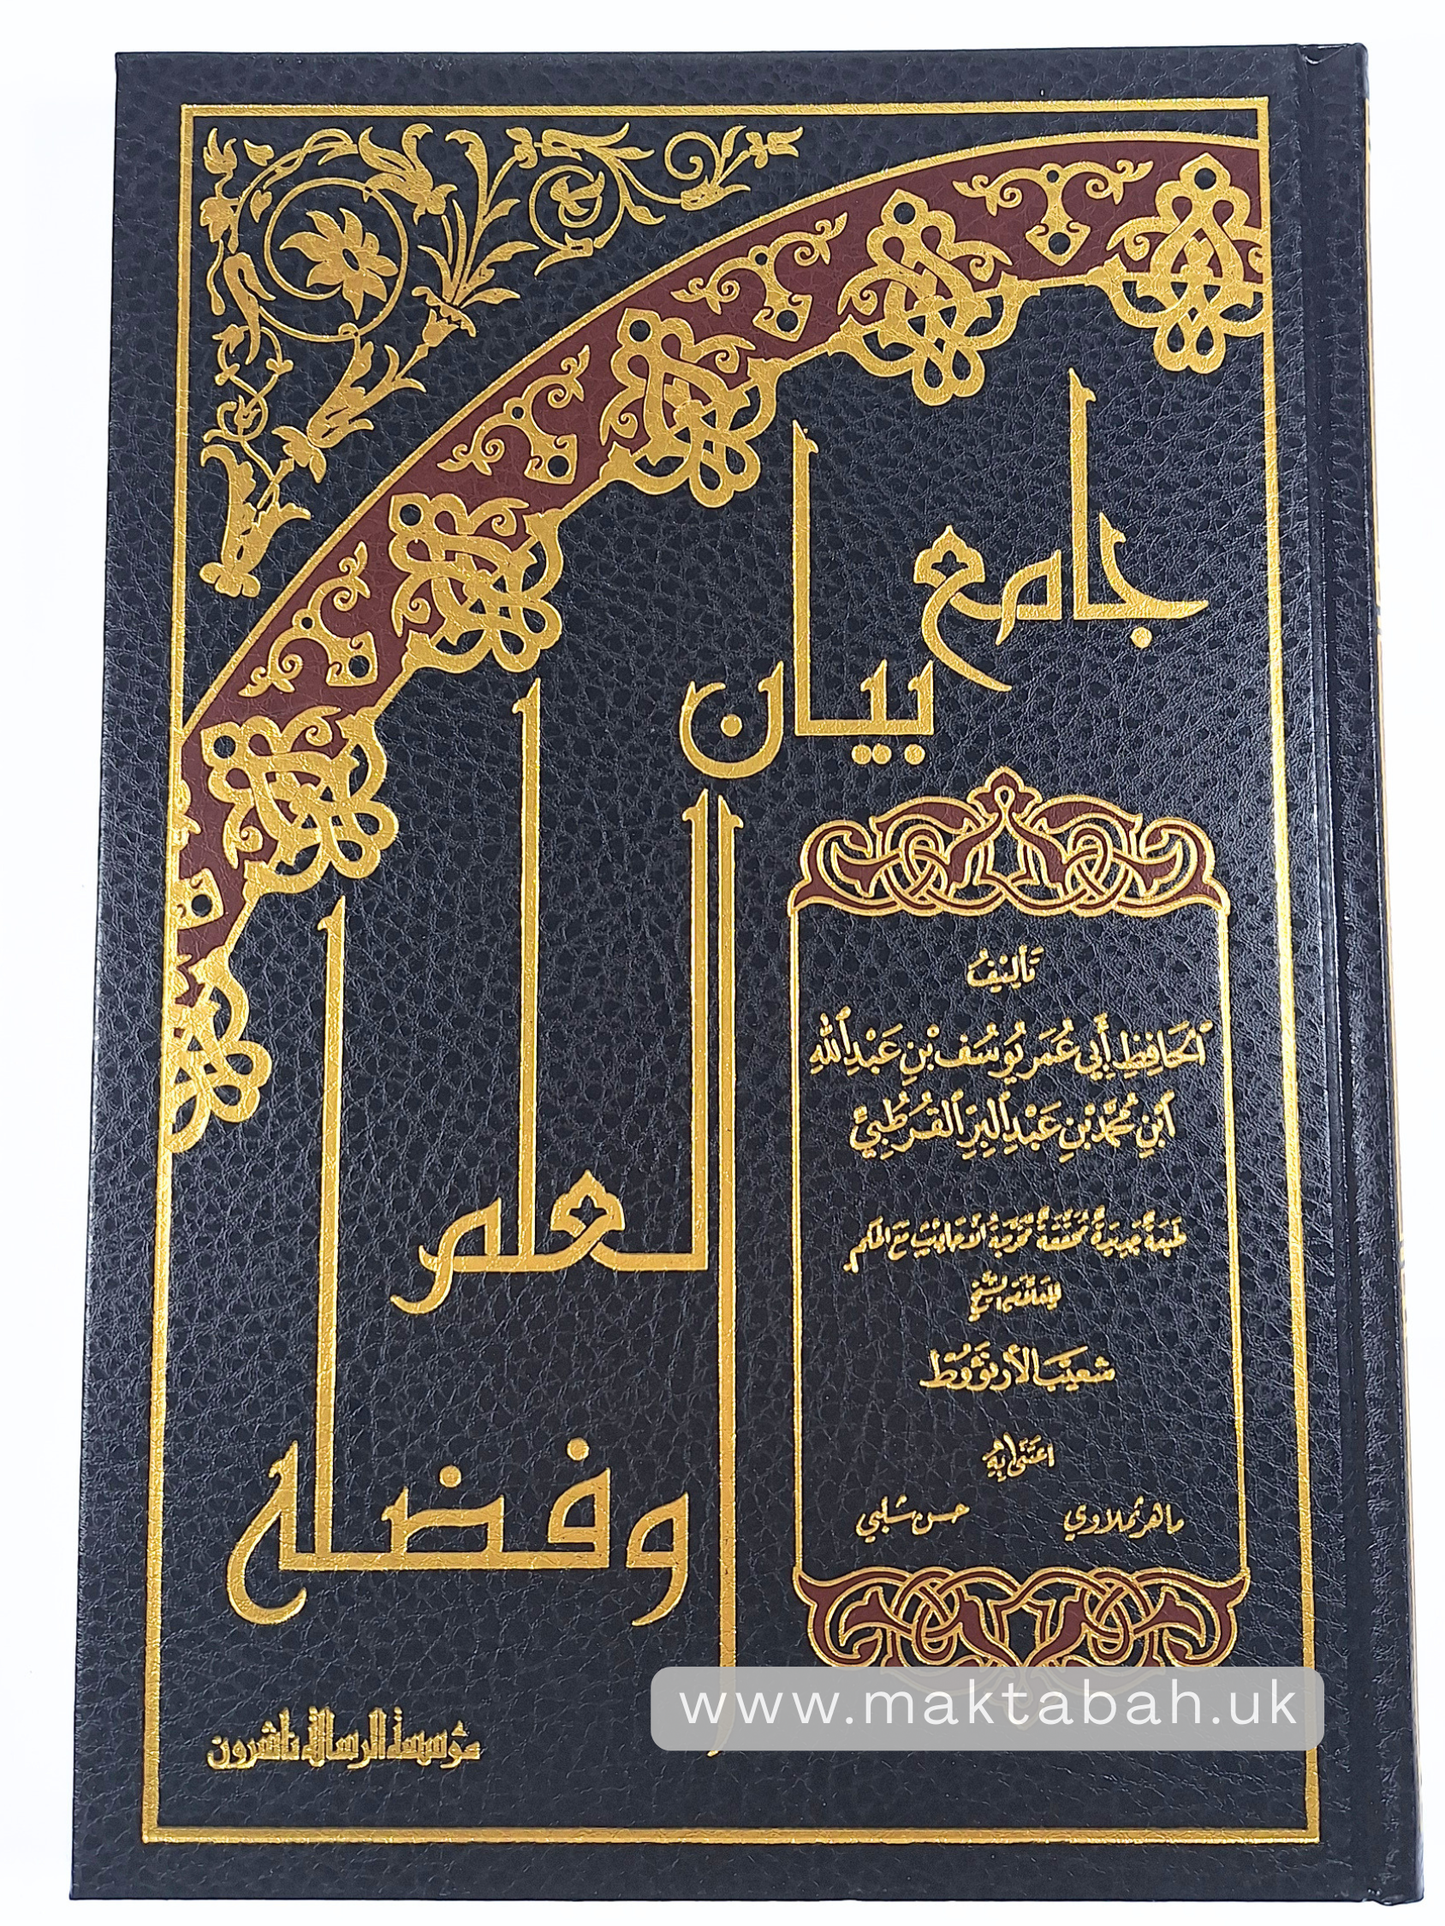 جامع
بيان
العلم
وفضله
تأليف
الحافظ أبي عمر يوسف بن عبد الله
ابن محمد بن عبد البر القرطبي
طبعة جديدة محققة مخرجة الأحاديث مع الحكم
للعلامة الشيخ
شعيب الأرنؤوط
اعتنى به
ماهر ثملاوي حسن شلبي
مؤسسة الرسالة ناشرون
www.maktabah.uk